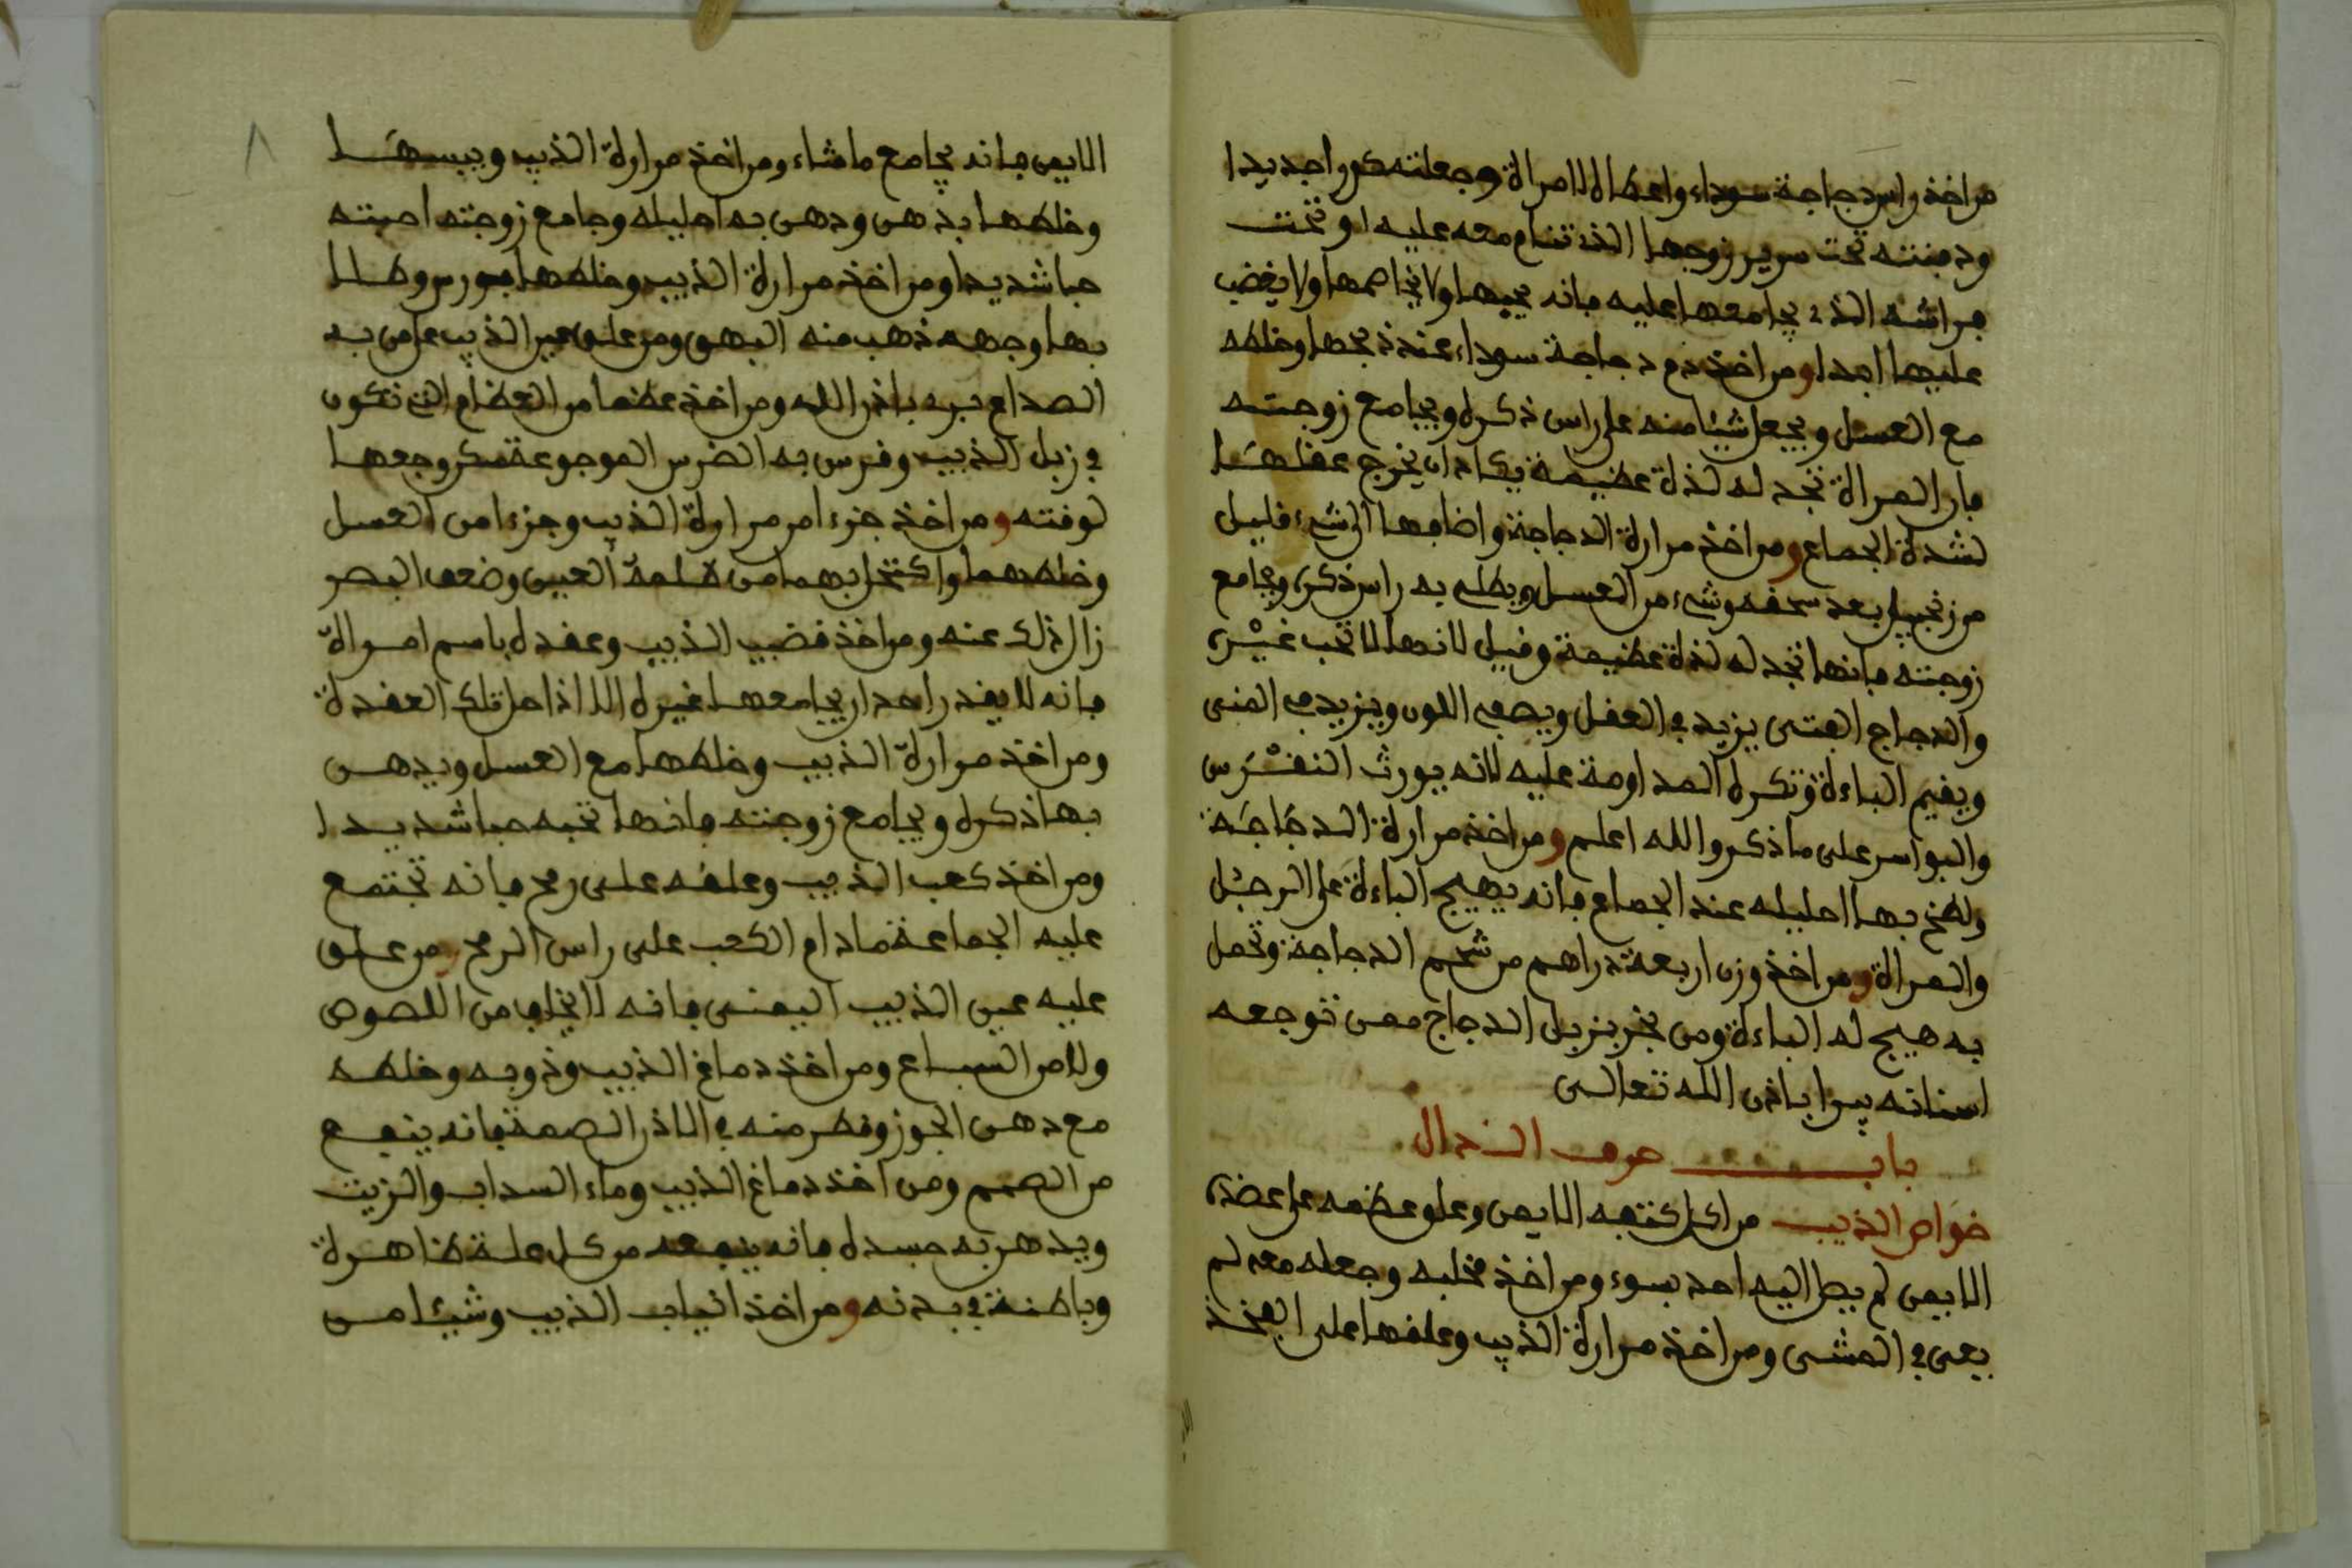 من اخذ راس دجاجة سوداء واعطاه لامراة وجعلته كورا جديدا
ودفنته تحت سرير زوجها الذي تنام معه عليه او تحت
فراشه الذي يجامعها عليه فانه يحبها ولا يخاصمها ولا يغضب
عليها ابدا ومن اخذ دم دجاجة سوداء عند ذبحها وخلطه
مع العسل ويجعل شيئا منه على راس ذكره ويجامع زوجته
فان المراة تجد له لذة عظيمة يكاد ان يخرج عقلها
لشدة الجماع ومن اخذ مرارة الدجاجة واضافها الى شيء قليل
من زنجبيل بعد سحقه وشيء من العسل ويطلي به راس ذكره ويجامع
زوجته فانها تجد له لذة عظيمة وقيل لانها لا تحب غيره
والدجاج الفتى يزيد في العقل ويصفي اللون ويزيد في المنى
ويقيم الباءة وتكره المداومة عليه لانه يورث النقرس
والبواسر على ما ذكر والله اعلم ومن اخذ مرارة الدجاجة
ولطخ بها احليله عند الجماع فانه يهيج الباءة على الرجل
والمراة ومن اخذ وزن اربعة دراهم من شحم الدجاجة وتحمل
به هيج له الباءة ومن بخر بزبل الدجاج ممن توجعه
اسنانه يبرا باذن الله تعالى
باب حرف الذال
خواص الذيب من اكل كتفه الايمن وعلق عظمه على عضده
الايمن لم يصل اليه احد بسوء ومن اخذ مخلبه وجعله معه لم
يعى في المشي ومن اخذ مرارة الذيب وعلقها على الفخذ
الايمن فانه يجامع ما شاء ومن اخذ مرارة الذيب ويبسها
وخلطها بدهن ودهن به احليله وجامع زوجته احبته
حبا شديدا ومن اخذ مرارة الذيب وخلطها بورس وطلا
بها وجهه ذهب منه البهق ومن علق عين الذيب على من به
الصداع بره باذن الله ومن اخذ عظما من العظام التي تكون
في زبل الذيب وفرس به الضرس الموجوعة سكن وجعها
لوقته ومن اخذ جزءا من مرارة الذيب وجزءا من العسل
وخلطهما واكتحل بهما من ظلمة العين وضعف البصر
زال ذلك عنه ومن اخذ قضيب الذيب وعقده باسم امراة
فانه لا يقدر احد ان يجامعها غيره الا اذا حل تلك العقدة
ومن اخذ مرارة الذيب وخلطها مع العسل ويدهن
بها ذكره ويجامع زوجته فانها تحبه حبا شديدا
ومن اخذ كعب الذيب وعلقه على رمح فانه تجتمع
عليه الجماعة مادام الكعب على راس الرمح ومن علق
عليه عين الذيب اليمنى فانه لا يخاف من اللصوص
ولا من السباع ومن اخذ دماغ الذيب وذوبه وخلطه
مع دهن الجوز وقطر منه في الاذن الصمة فانه ينفع
من الصمم ومن اخذ دماغ الذيب وماء السداب والزيت
ويدهن به جسده فانه ينفعه من كل علة ظاهرة
وباطنة في بدنه ومن اخذ انياب الذيب وشيئا من
٨